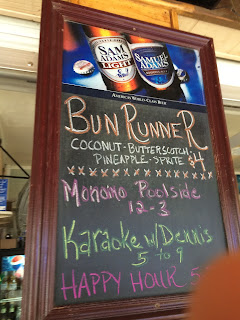 SAM ADAMS LIGHT
SAMUEL ADAMS
AMERICA'S WORLD-CLASS BEER
BUN RUNNER
COCONUT-BUTTERSCOTCH-
PINEAPPLE-SPRITE $4
Momomo Poolside
12-3
Karaoke w/Dennis
5 to 9
HAPPY HOUR 5